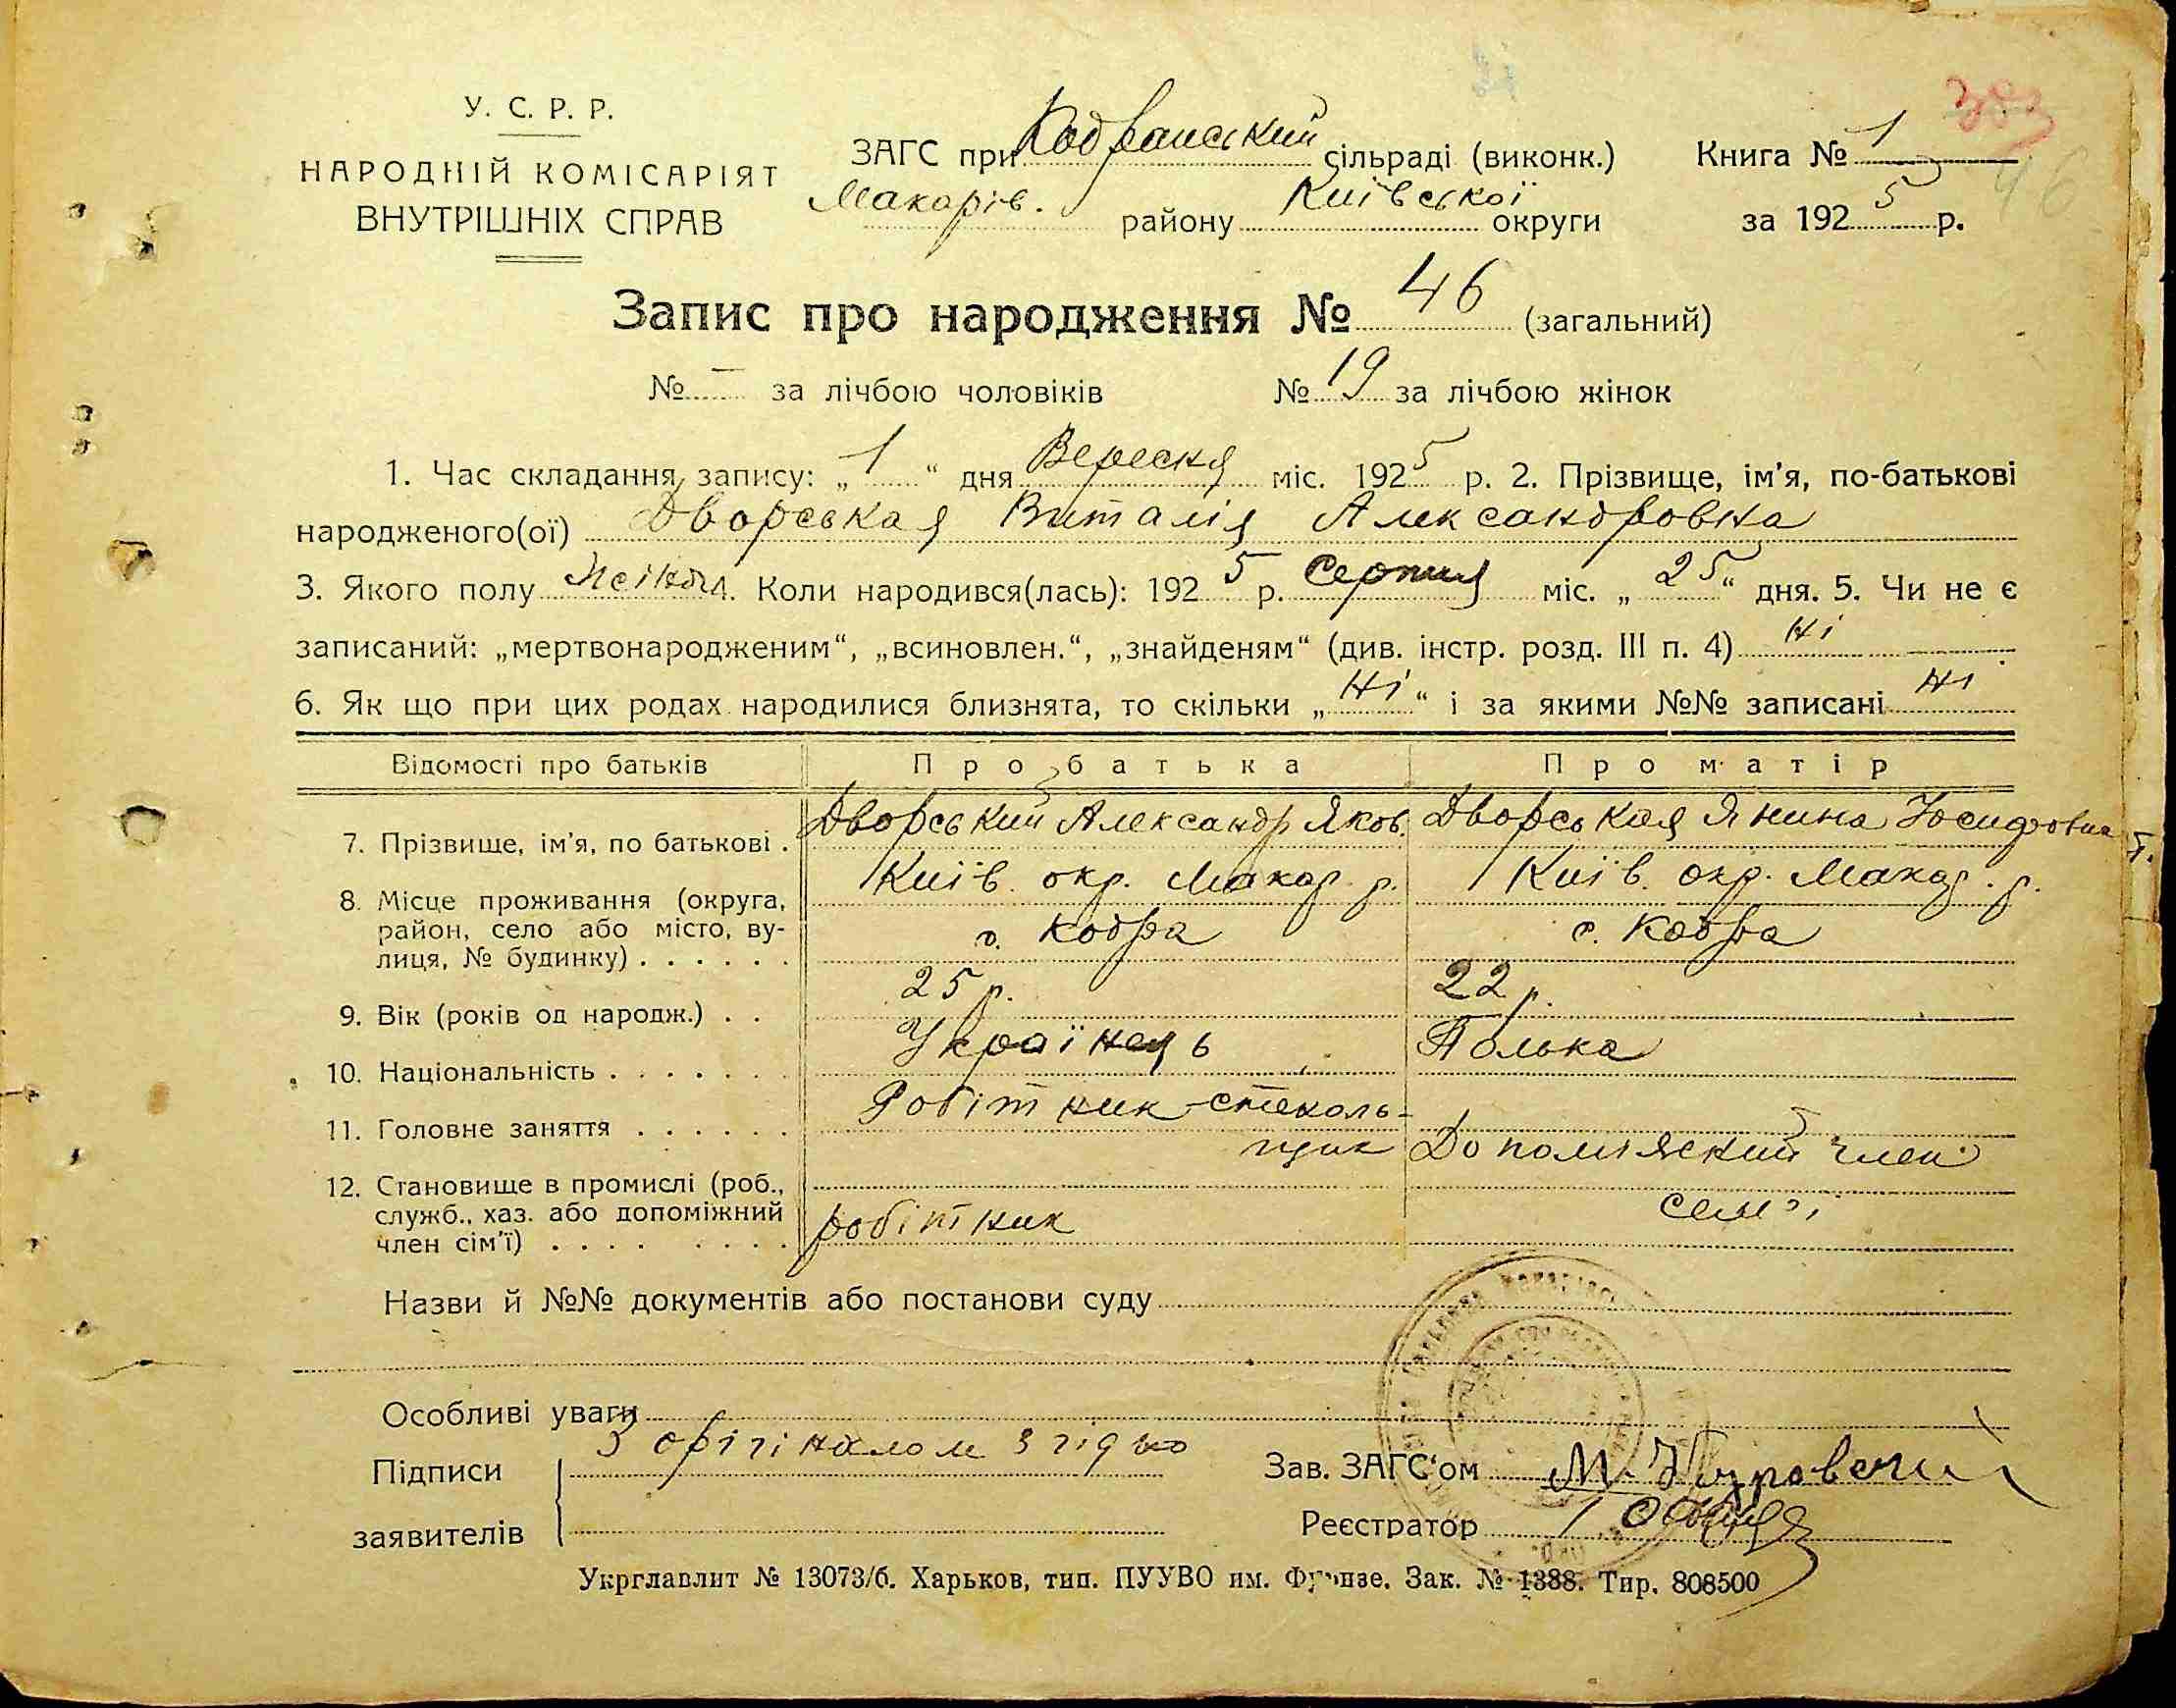 У. С. Р. Р.
НАРОДНІЙ КОМІСАРІЯТ
ВНУТРІШНІХ СПРАВ
ЗАГС при Кодранський сільраді (виконк.)
Макарів. району Київської округи
Книга № 1
за 1925 р.
46
Запис про народження № 46 (загальний)
№ — за лічбою чоловіків № 19 за лічбою жінок
1. Час складання запису: „ 1 “ дня Вересня міс. 1925 р. 2. Прізвище, ім'я, по-батькові
народженого(ої) Дворськая Виталія Александровна
3. Якого полу Коли народився(лась): 1925 р. Серпня міс. „ 25 “ дня. 5. Чи не є
записаний: „мертвонародженим“, „всиновлен.“, „знайденям“ (див. інстр. розд. III п. 4) Ні
6. Як що при цих родах народилися близнята, то скільки „ Ні “ і за якими №№ записані Ні
Відомості про батьків Про батька Про матір
7. Прізвище, ім'я, по батькові . Дворський Александр Яков. Дворськая Янина Іосифовна
8. Місце проживання (округа, Київ. окр. Макар. р. Київ. окр. Макар. р.
район, село або місто, ву- с. Кодра с. Кодра
лиця, № будинку) . . . . . .
9. Вік (років од народж.) . . 25 р. 22 р.
10. Національність . . . . . . . Українець Полька
11. Головне заняття . . . . . . Робітник-стеколь-
щик Допоміжский член
12. Становище в промислі (роб.,
служб., хаз. або допоміжний робітник сем'ї
член сім'ї) . . . . . . . .
Назви й №№ документів або постанови суду
Особливі уваги
З орігіналом згідно
Підписи
заявителів
Зав. ЗАГС'ом
Реєстратор
Укрглавлит № 13073/б. Харьков, тип. ПУУВО им. Фрунзе. Зак. № 1388. Тир. 808500